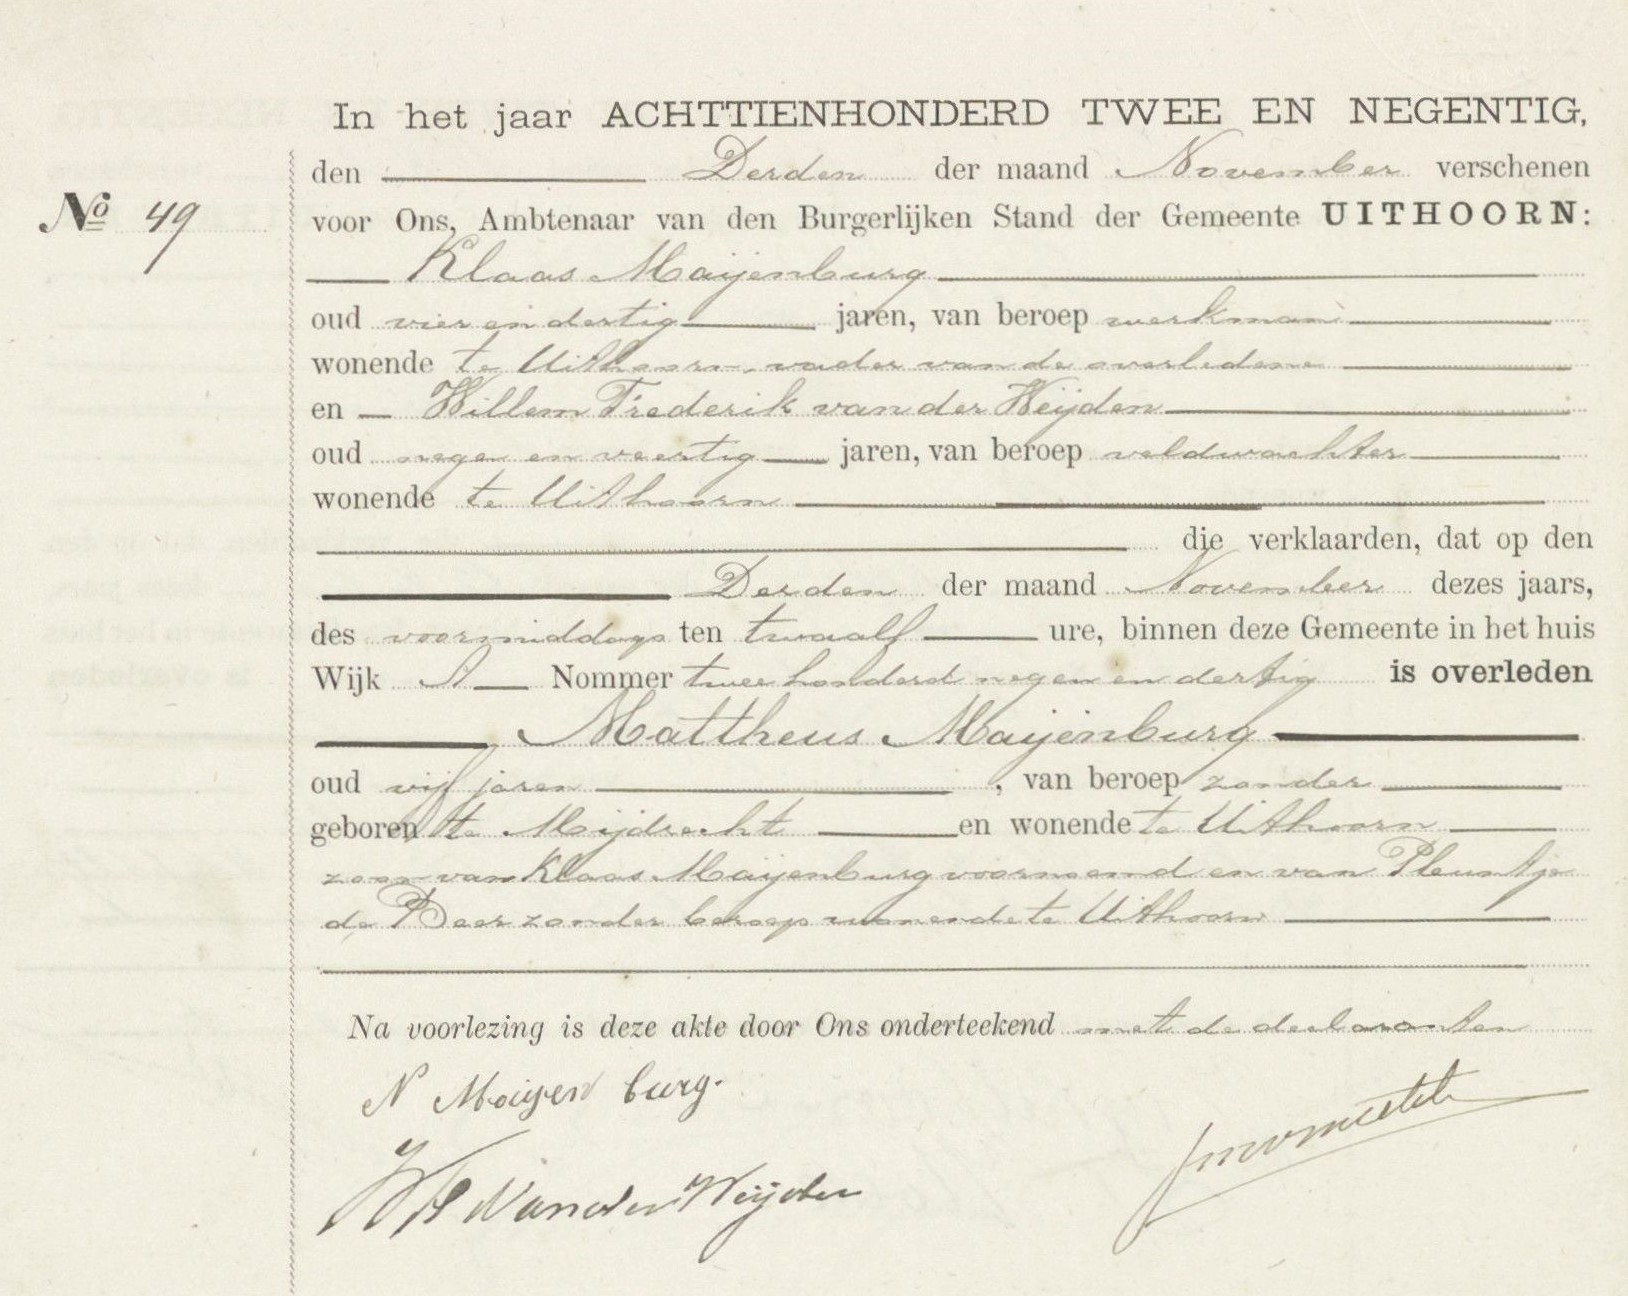 In het jaar ACHTTIENHONDERD TWEE EN NEGENTIG,
den Derden der maand November verschenen
No 49
voor Ons, Ambtenaar van den Burgerlijken Stand der Gemeente UITHOORN:
Klaas Maijenburg
oud vier en dertig jaren, van beroep werkman
wonende te Uithoorn, vader van de overledene
en Willem Frederik van der Weijden
oud negen en veertig jaren, van beroep veldwachter
wonende te Uithoorn
die verklaarden, dat op den
Derden der maand November dezes jaars,
des voormiddags ten twaalf ure, binnen deze Gemeente in het huis
Wijk A Nommer twee honderd negen en dertig is overleden
Mattheus Maijenburg
oud vijf jaren, van beroep zonder
geboren te Mijdrecht en wonende te Uithoorn
zoon van Klaas Maijenburg voornoemd en van Pleuntje
de Beer zonder beroep wonende te Uithoorn
Na voorlezing is deze akte door Ons onderteekend met de declaranten
N Maijenburg.
WF Van der Weijden